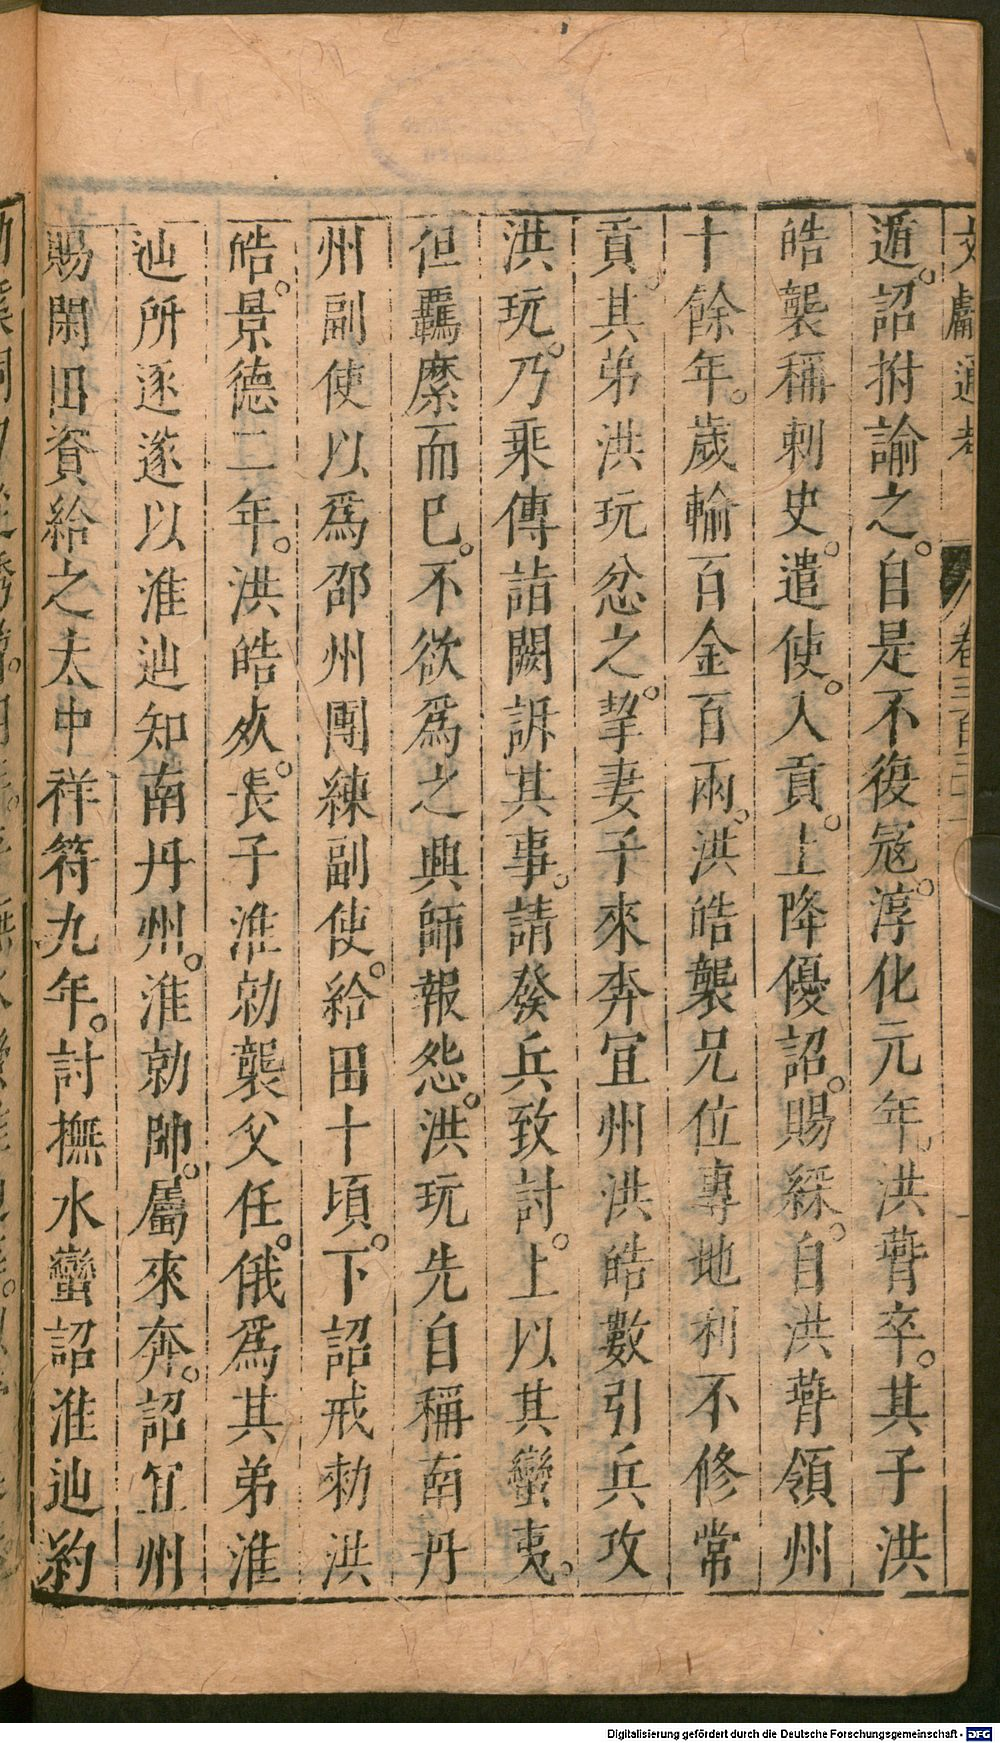 文獻通考 卷三百三十一
遁。詔拊諭之。自是不復㓂。淳化元年。洪䔧卒。其子洪
皓襲稱刺史。遣使。入貢。上降優詔。賜綵。自洪䔧領州
十餘年。歲輸百金百兩。洪皓襲兄位專地利不修常
貢。其弟洪玩忿之。挈妻子來奔宜州洪皓數引兵攻
洪玩。乃乘傳詣闕訴其事。請發兵致討。上以其蠻夷。
但羈縻而已。不欲爲之興師報怨。洪玩先自稱南丹
州副使以爲邵州團練副使。給田十頃。下詔戒勑洪
皓。景德二年。洪皓死。長子淮勍襲父任。俄爲其弟淮
辿所逐遂以淮辿知南丹州。淮勍帥。屬來奔。詔宜州
賜閑田資給之大中祥符九年。討撫水蠻詔淮辿約
Digitalisierung gefördert durch die Deutsche Forschungsgemeinschaft - DFG